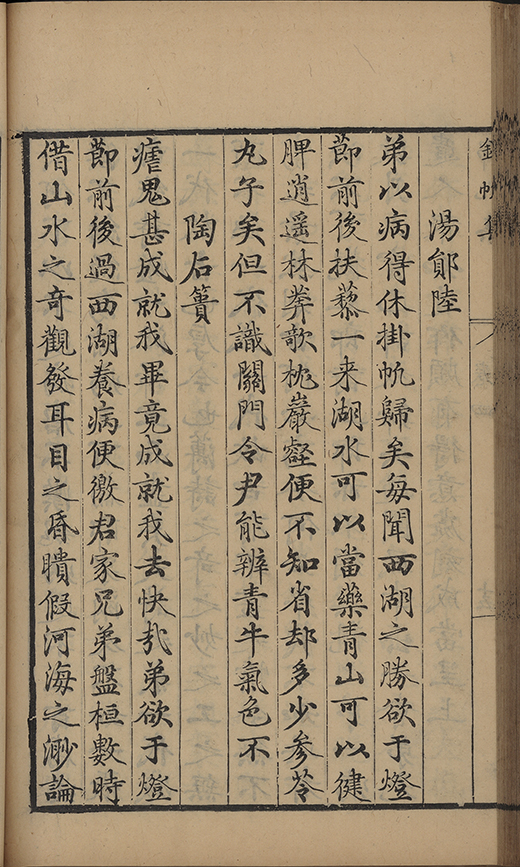 錦帆集
湯鄖陸
弟以病得休掛帆歸矣每聞西湖之勝欲于燈
節前後扶藜一来湖水可以當藥青山可以健
脾逍遥林莽歌枕巖壑便不知省却多少参苓
丸子矣但不識關門令尹能辨青牛氣色不
陶石簣
瘧鬼甚成就我畢竟成就我去快㢤弟欲于燈
節前後過西湖養病便徼君家兄弟盤桓數時
借山水之奇觀發耳目之昏聵假河海之渺論